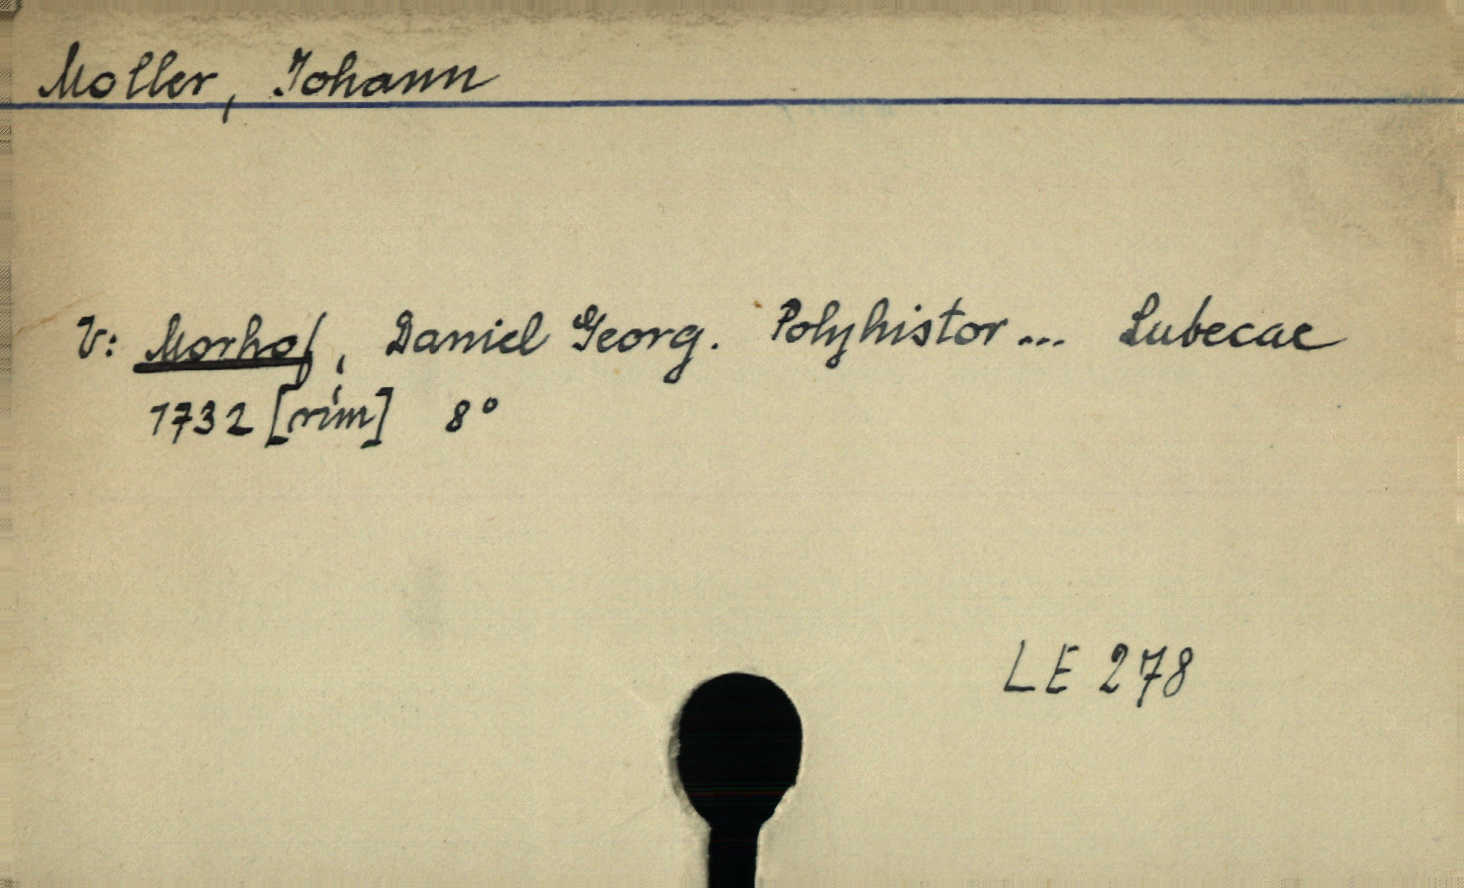 Moller, Johann
V: Morhof, Daniel Georg. Polyhistor... Lubecae
1732 [rím] 8°
LE 278